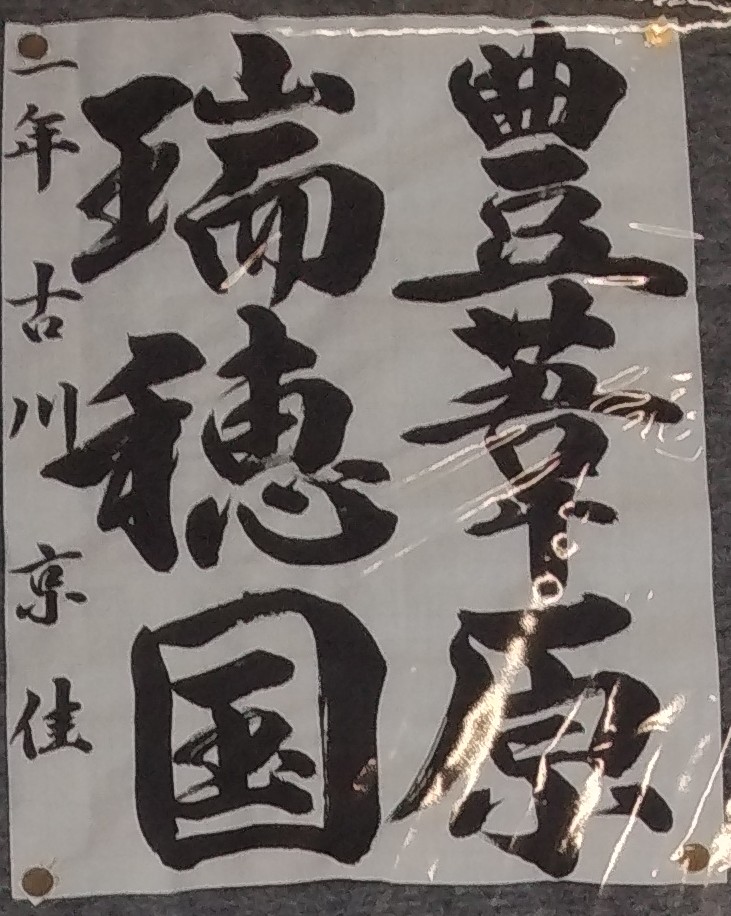 豊葦原
瑞穂国
一年 古川 京佳